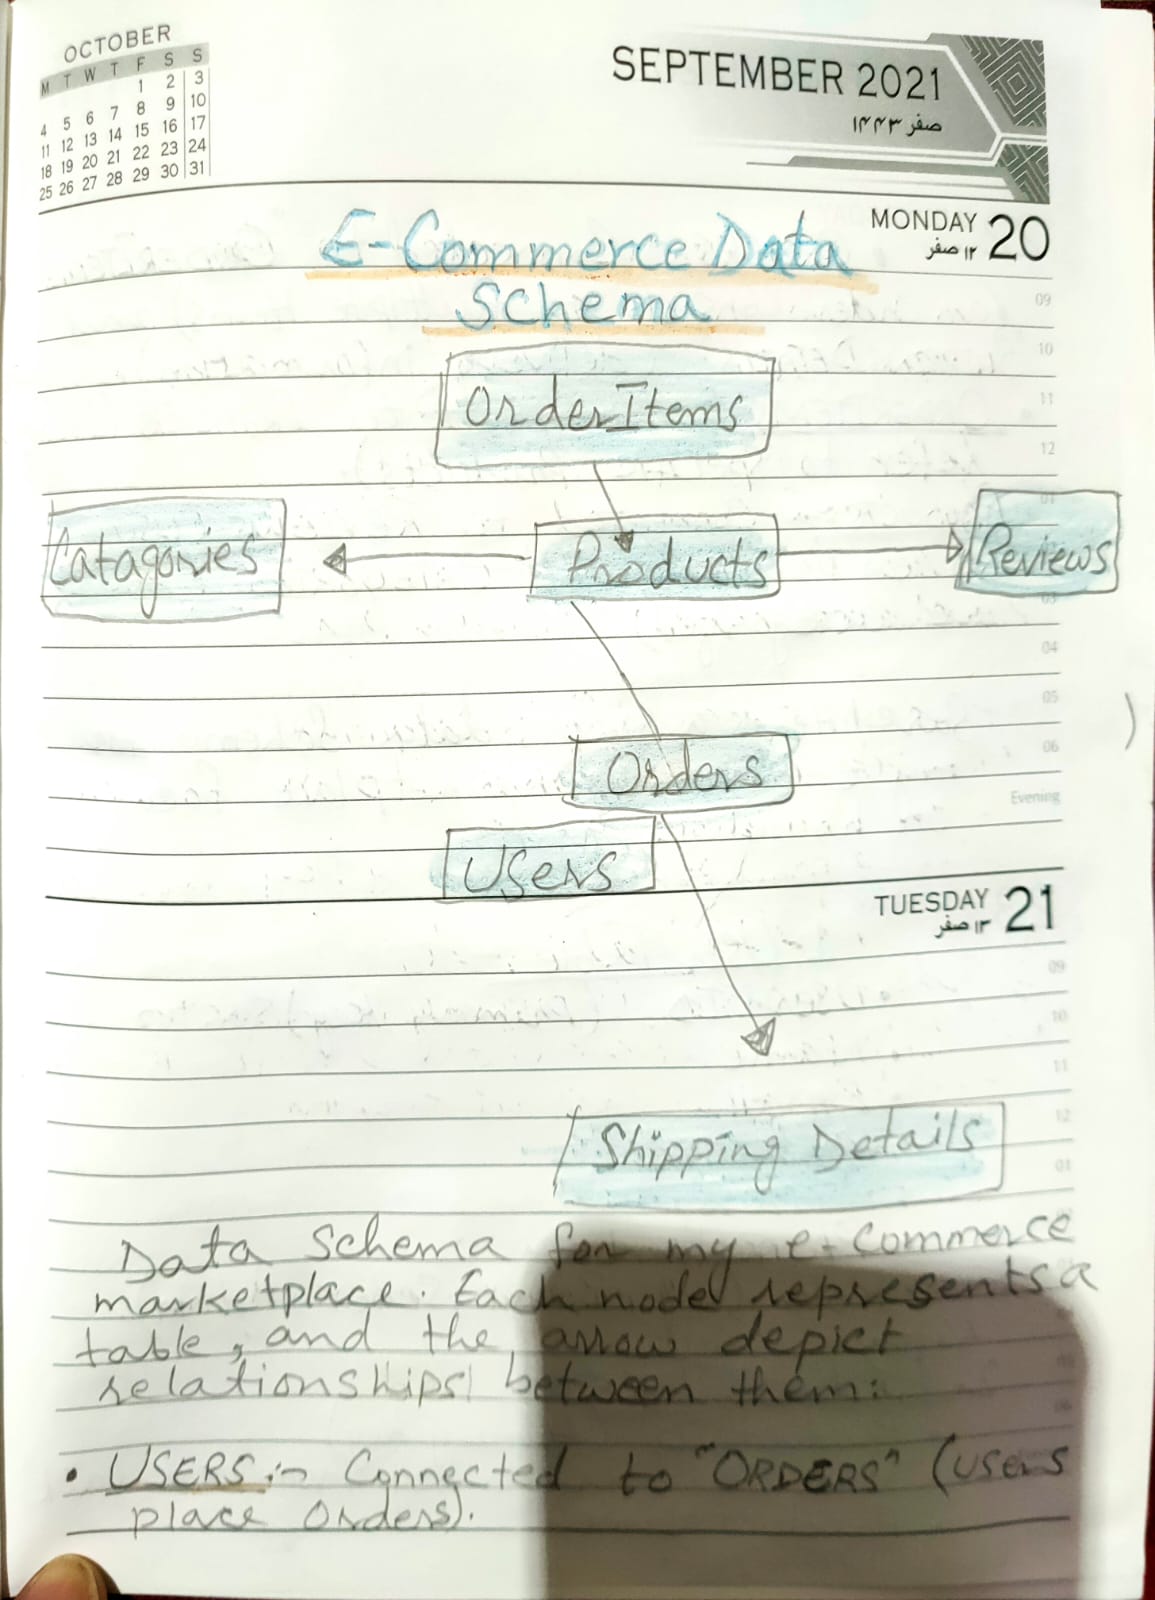 OCTOBER
M T W T F S S
1 2 3
4 5 6 7 8 9 10
11 12 13 14 15 16 17
18 19 20 21 22 23 24
25 26 27 28 29 30 31
SEPTEMBER 2021
صفر ۱۴۴۳
MONDAY 20
۱۲ صفر
E-Commerce Data
Schema
09
10
11
12
01
03
04
05
06
Evening
OrderItems
Catagories
Products
Reviews
Orders
Users
TUESDAY 21
۱۳ صفر
09
10
11
12
01
Shipping Details
Data Schema for my e-commerce
marketplace. Each node represents a
table, and the arrow depict
relationships between them:
• USERS :- Connected to "ORDERS" (users
place orders).